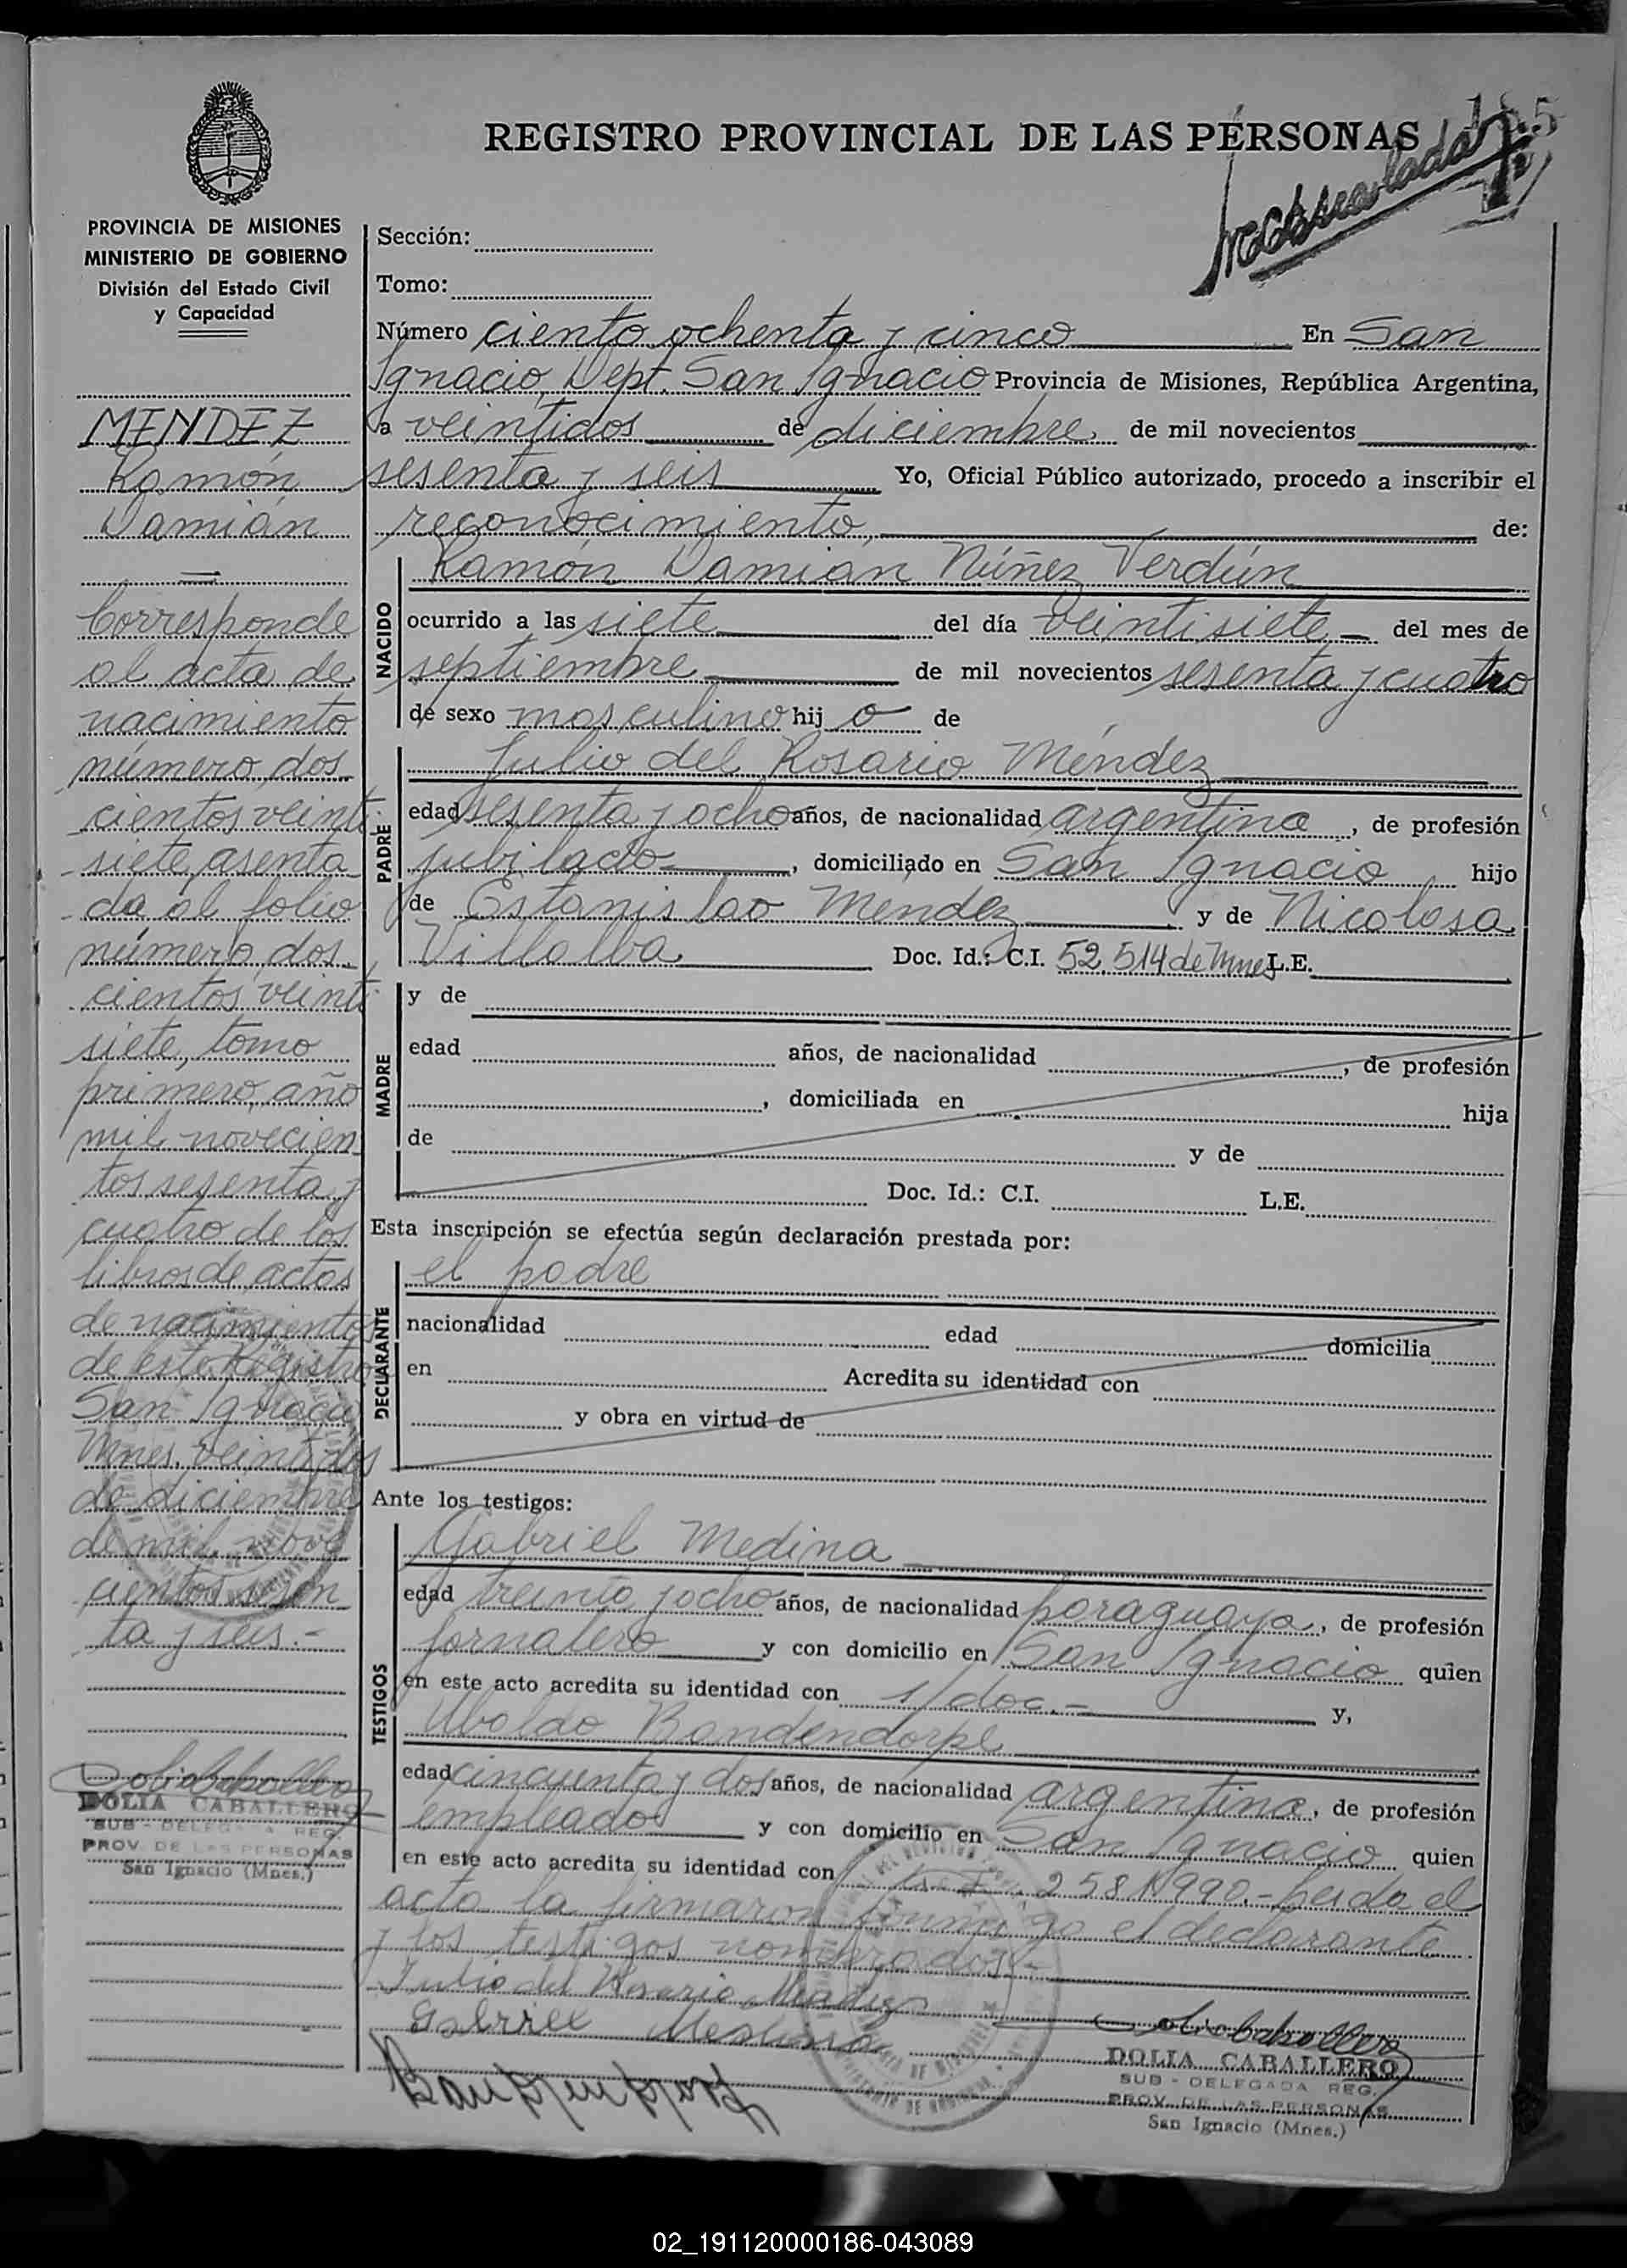 185
REGISTRO PROVINCIAL DE LAS PERSONAS
PROVINCIA DE MISIONES
MINISTERIO DE GOBIERNO
División del Estado Civil
y Capacidad
MENDEZ
Ramón
Damián
—
Corresponde
al acta de
nacimiento
número dos
cientos veinti
siete, asenta
da al folio
número dos
cientos veinti
siete, tomo
primero, año
mil novecien
tos sesenta y
cuatro de los
libros de actas
de nacimientos
de este Registro
San Ignacio,
Mnes. veintidos
de diciembre
de mil nove
cientos sesen
ta y seis.-
DOLIA CABALLERO
SUB - DELEGADA REG.
PROV. DE LAS PERSONAS
San Ignacio (Mnes.)
Sección:
Tomo:
Número ciento ochenta y cinco En San
Ignacio, Dept. San Ignacio Provincia de Misiones, República Argentina,
a veintidos de diciembre de mil novecientos
sesenta y seis Yo, Oficial Público autorizado, procedo a inscribir el
reconocimiento, de:
NACIDO
Ramón Damián Núñez Verdún
ocurrido a las siete del día veintisiete del mes de
septiembre de mil novecientos sesenta y cuatro
de sexo masculino hij o de
PADRE
Julio del Rosario Méndez
edad sesenta y ocho años, de nacionalidad argentina, de profesión
jubilado, domiciliado en San Ignacio hijo
de Estanislao Méndez y de Nicolasa
Villalba Doc. Id.: C.I. 52.514 de Mnes L.E.
MADRE
y de
edad años, de nacionalidad , de profesión
, domiciliada en hija
de y de
Doc. Id.: C.I. L.E.
Esta inscripción se efectúa según declaración prestada por:
DECLARANTE
el padre
nacionalidad edad domicilia
en Acredita su identidad con
y obra en virtud de
Ante los testigos:
TESTIGOS
Gabriel Medina
edad treinta y ocho años, de nacionalidad paraguaya, de profesión
jornalero y con domicilio en San Ignacio quien
en este acto acredita su identidad con s/doc.- y,
Ubaldo Bandendorpe
edad cincuenta y dos años, de nacionalidad argentina, de profesión
empleado y con domicilio en San Ignacio quien
en este acto acredita su identidad con 2581990.- Leida el
acta la firmaron conmigo el declarante
y los testigos nombrados.-
Julio del Rosario Mendez
Gabriel Medina
DOLIA CABALLERO
SUB - DELEGADA REG.
PROV. DE LAS PERSONAS
San Ignacio (Mnes.)
02_191120000186-043089